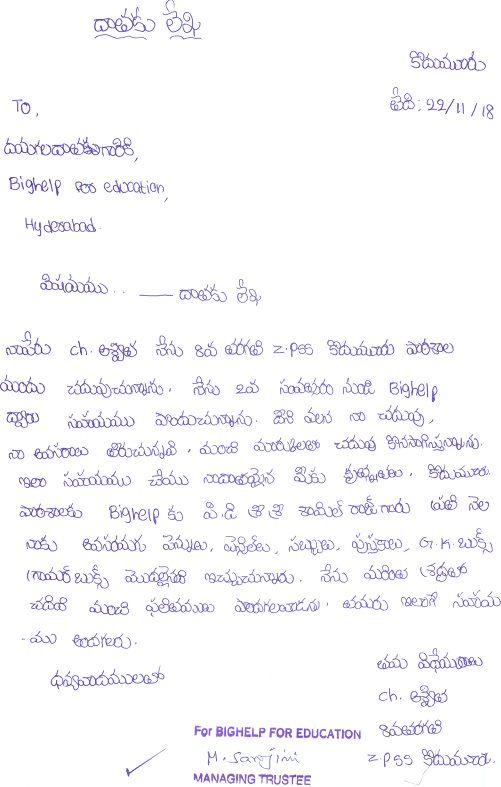 దాతకు లేఖ
కొదుమూరు
తేది: 22/11/18
To,
దయగలదాతకుగారికి,
Bighelp For education,
Hyderabad.
విషయము.. —— దాతకు లేఖ
నాపేరు ch. అశ్విత నేను 8వ తరగతి Z.PSS కొదుమూరు పాఠశాల
యందు చదువుచున్నాను. నేను 2వ సంవత్సరం నుండి Bighelp
ద్వారా సహయము పొందుచున్నాను. దీని వలన నా చదువు,
నా అవసరాలు తీరుచున్నవి, మంచి మార్కులతో చదువు కొనసాగిస్తున్నాను.
ఇలా సహయము చేయు నాదాతయైన మీకు కృతజ్ఞతలు. కొదుమూరు
పాఠశాలకు Bighelp కు పి.డి శ్రీ శ్రీ శామిల్ రాజ్ గారు ప్రతి నెల
నాకు అవసరమగు పెన్నులు, పెన్సిళ్లు, సబ్బులు, పుస్తకాలు, G.K. బుక్స్
గ్రామర్ బుక్స్ మొదలైనవి ఇచ్చుచున్నారు. నేను మరింత శ్రద్ధతో
చదివి మంచి ఫలితములు పొందగలవాడను. తమరు ఇలాగే సహయ
-ము అందగలరు.
ధన్యవాదములతో
తమ విధేయురాలు
ch. అశ్విత
8వతరగతి
Z.PSS కొదుమూరు.
For BIGHELP FOR EDUCATION
M. Sarojini
MANAGING TRUSTEE